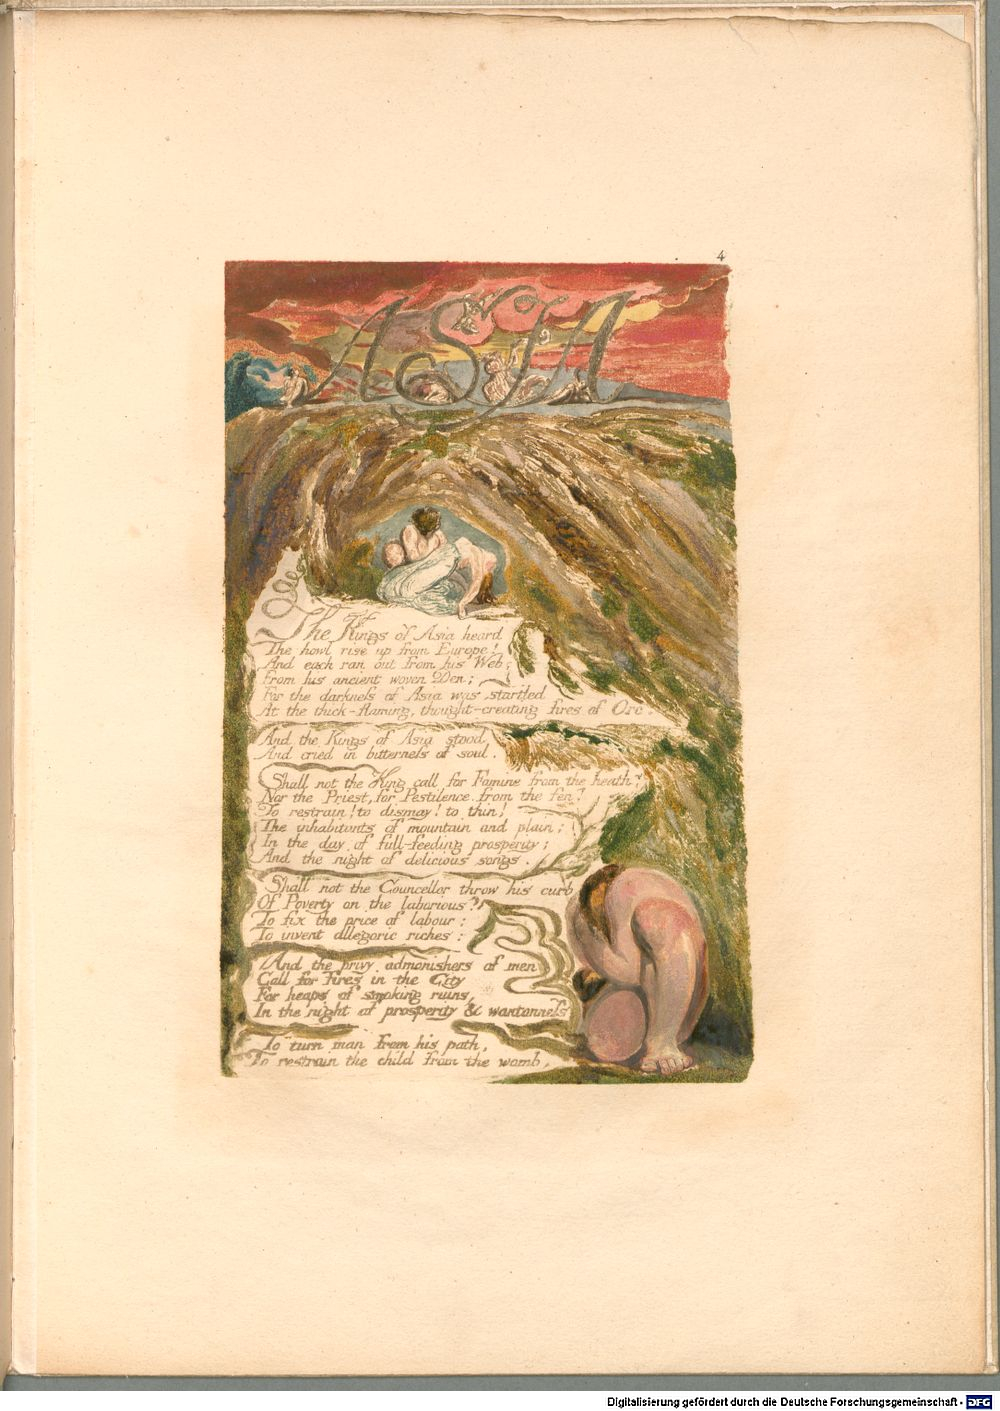 4
ASIA
The Kings of Asia heard
The howl rise up from Europe!
And each ran out from his Web;
From his ancient woven Den;
For the darkness of Asia was startled
At the thick-flaming, thought-creating fires of Orc.
And the Kings of Asia stood
And cried in bitterness of soul.
Shall not the King call for Famine from the heath?
Nor the Priest, for Pestilence from the fen?
To restrain! to dismay! to thin!
The inhabitants of mountain and plain;
In the day, of full-feeding prosperity;
And the night of delicious songs.
Shall not the Councellor throw his curb
Of Poverty on the laborious?
To fix the price of labour;
To invent allegoric riches:
And the privy admonishers of men
Call for Fires in the City
For heaps of smoking ruins,
In the night of prosperity & wantonness
To turn man from his path,
To restrain the child from the womb,
Digitalisierung gefördert durch die Deutsche Forschungsgemeinschaft - DFG